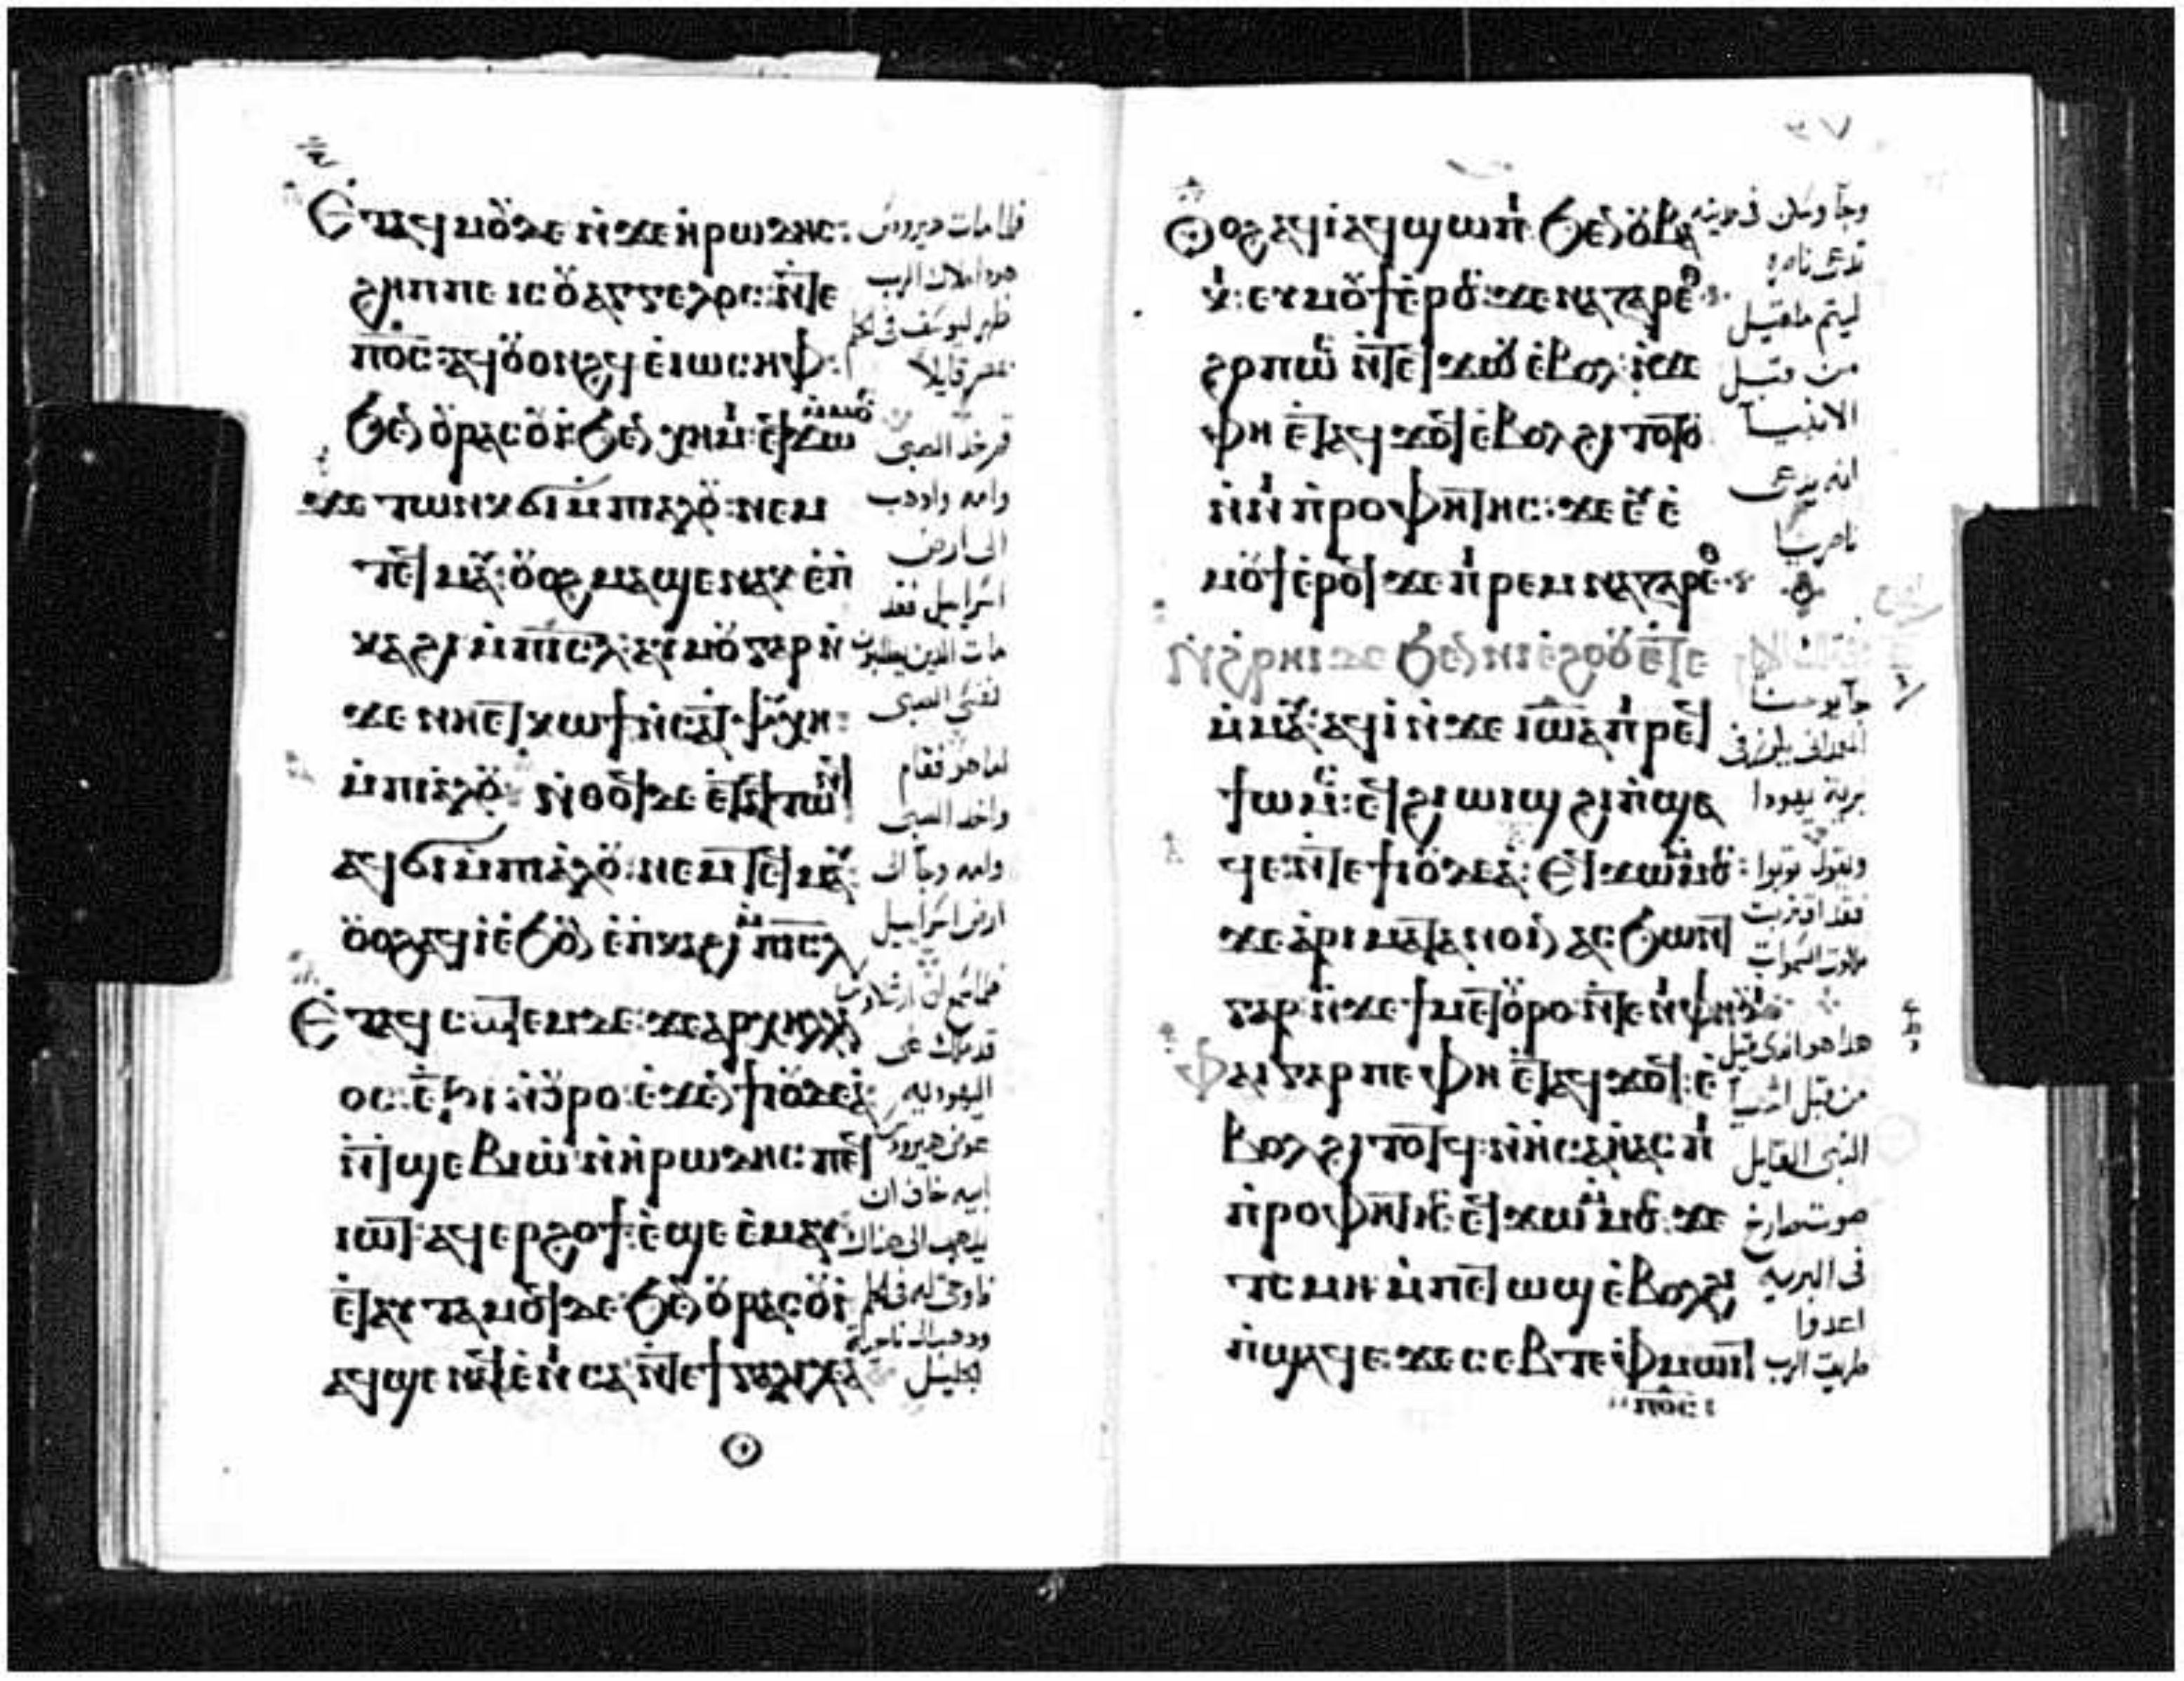 Ⲉⲧⲁϥⲙⲟⲩ ⲇⲉ ⲛ̀ϫⲉ ⲏⲣⲱⲇⲏⲥ:
ϩⲏⲡⲡⲉ ⲓⲥ ⲟⲩⲁⲅⲅⲉⲗⲟⲥ ⲛ̀ⲧⲉ
ⲡⲟ̅ⲥ̅ ⲁϥⲟⲩⲟⲛϩϥ ⲉ̀ⲓⲱⲥⲏⲫ:
ϧⲉⲛ ⲟⲩⲣⲁⲥⲟⲩⲓ̀: ϧⲉⲛ ⲭⲏⲙⲓ: ⲉϥϫⲱ ⲙⲙⲟⲥ
ϫⲉ ⲧⲱⲛⲕ ϭⲓ ⲙ̀ⲡⲓⲁⲗⲟⲩ: ⲛⲉⲙ
ⲧⲉϥⲙⲁⲩ: ⲟⲩⲟϩ ⲙⲁϣⲉ ⲛⲁⲕ ⲉ̀ⲡ
ⲕⲁϩⲓ ⲙ̀ⲡⲓ̅ⲥ̅ⲗ̅: ⲁⲩⲙⲟⲩ ⲅⲁⲣ ⲛ̀
ϫⲉ ⲛⲏⲉⲧⲕⲱϯ ⲛ̀ⲥⲁ ϯⲯⲩⲭⲏ:
ⲙ̀ⲡⲓⲁⲗⲟⲩ: ⲛ̀ⲑⲟϥ ⲇⲉ ⲉ̀ⲧⲁϥⲧⲱⲛϥ
ⲁϥϭⲓ ⲙ̀ⲡⲓⲁⲗⲟⲩ: ⲛⲉⲙ ⲧⲉϥⲙⲁⲩ:
ⲟⲩⲟϩ ⲁϥⲓ̀ ⲉ̀ϧⲟⲩⲛ ⲉ̀ⲡⲕⲁϩⲓ ⲙⲡⲓ̅ⲥ̅ⲗ̅
Ⲉⲧⲁϥⲥⲱⲧⲉⲙ ⲇⲉ: ϫⲉ ⲁⲣⲭⲏⲗⲁ
ⲟⲥ: ⲉⲧⲟⲓ ⲛ̀ⲟⲩⲣⲟ: ⲉ̀ϫⲉⲛ ϯⲓⲟⲩⲇⲉⲁ̀:
ⲛ̀ⲧϣⲉⲃⲓⲱ̀ ⲛ̀ⲏ̀ⲣⲱⲇⲏⲥ: ⲡⲉϥ
ⲓⲱⲧ: ⲁϥⲉⲣϩⲟϯ: ⲉ̀ϣⲉ ⲉ̀ⲙⲁⲩ
ⲉ̀ⲧⲁⲩⲧⲁⲙⲟϥ ⲇⲉ: ϧⲉⲛ ⲟⲩⲣⲁⲥⲟⲩⲓ̀
ⲁϥϣⲉ ⲛⲁϥ ⲉ̀ⲛⲥⲁ ⲛ̀ⲧⲉ ϯⲅⲁⲗⲓⲗⲉⲁ
فلما مات هيرودس
هودا ملاك الرب
ظهر ليوسف في الحلم
بمصر قايلا
قم خذ الصبي
وامه واذهب
الى ارض
اسراييل فقد
مات الذين يطلبون
نفس الصبي
اما هو فقام
واخذ الصبي
وامه وجآ الى
ارض اسراييل
فلما سمع ان ارشلاوس
قد ملك على
اليهوديه
عوض هيرودس
ابيه خاف ان
يذهب الى هناك
فاوحى له في الحلم
وذهب الى ناحية
الجليل
٣٧
Ⲟⲩⲟϩ ⲁϥⲓ̀ ⲁϥϣⲱⲡⲓ ϧⲉⲛ ⲟⲩⲃⲁ
ⲕⲓ: ⲉⲩⲙⲟⲩϯ ⲉ̀ⲣⲟⲥ: ϫⲉ ⲛⲁⲍⲁⲣⲉⲑ:
ϩⲟⲡⲱⲥ ⲛ̀ⲧⲉϥϫⲱⲕ ⲉ̀ⲃⲟⲗ: ⲛϫⲉ
ⲫⲏ ⲉ̀ⲧⲁϥϫⲟϥ ⲉ̀ⲃⲟⲗϩⲓⲧⲟⲧⲟⲩ
ⲛ̀ⲛⲓ ⲡ̀ⲣⲟⲫⲏⲧⲏⲥ: ϫⲉ ⲉⲩⲉ̀
ⲙⲟⲩϯ ⲉ̀ⲣⲟϥ ϫⲉ ⲡⲓⲣⲉⲙⲛⲁⲍⲁⲣⲉⲑ:
Ⲛ̀ϩ̀ⲣⲏⲓ ⲇⲉ ϧⲉⲛ ⲛⲓⲉ̀ϩⲟⲟⲩ ⲉ̀ⲧⲉ
ⲙ̀ⲙⲁⲩ: ⲁϥⲓ̀ ⲛ̀ϫⲉ ⲓⲱⲁ ⲡⲓⲣⲉϥ
ϯⲱⲙⲥ: ⲉϥϩⲓⲱⲓϣ ϩⲓ ⲡ̀ϣⲁ
ϥⲉ: ⲛ̀ⲧⲉ ϯⲓⲟⲩⲇⲉⲁ̀: ⲉϥϫⲱ ⲙⲙⲟⲥ:
ϫⲉ ⲁ̀ⲣⲓⲙⲉⲧⲁⲛⲟⲓⲛ ⲁⲥϧⲱⲛⲧ
ⲅⲁⲣ: ⲛ̀ϫⲉ ϯⲙⲉⲧⲟⲩⲣⲟ: ⲛ̀ⲧⲉ ⲛⲓⲫⲏⲟⲩⲓ
Ⲫⲁⲓ ⲅⲁⲣ ⲡⲉ ⲫⲏ ⲉ̀ⲧⲁϥϫⲟϥ: ⲉ̀
ⲃⲟⲗϩⲓⲧⲟⲧϥ: ⲛ̀ⲏ̀ⲥⲁⲏ̀ⲁⲥ ⲡⲓ
ⲡ̀ⲣⲟⲫⲏⲧⲏⲥ: ⲉϥϫⲱ ⲙⲙⲟⲥ: ϫⲉ
ⲧⲥⲙⲏ ⲙ̀ⲡⲉⲧⲱϣ ⲉ̀ⲃⲟⲗ ϩⲓ
ⲡ̀ϣⲁϥⲉ: ϫⲉ ⲥⲉⲃⲧⲉ ⲫⲙⲱⲓⲧ
ⲙⲡⲟ̅ⲥ̅:
وجآ وسكن في مدينه
تدعى ناصره
ليتم ما قيل
من قبل
الانبيآ
انه يدعى
ناصريا
جآ يوحنا
المعمدان يكرز في
برية يهودا
ويقول توبوا
فقد اقتربت
ملكوت السموات
هذا هو الذى قيل
من قبل اشعيآ
النبي القايل
صوت صارخ
في البريه
اعدوا
طريق الرب